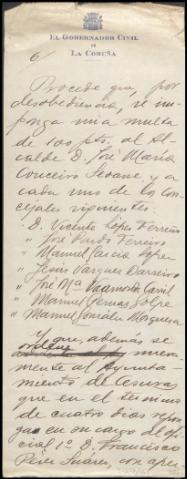 EL GOBERNADOR CIVIL
DE
LA CORUÑA
6/
Procede que, por
desobediencia, se im-
ponga una multa
de 100 pts. al Al-
calde D. José María
Couceiro Seoane, y a
cada uno de los Con-
cejales siguientes:
D. Vicente López Ferreiro
" José Pardo Ferreiro
" Manuel García López
" Jesús Vázquez Barreiro
" José Mª Vaamonde
" Manuel
" Manuel González Mosquera
Y que, además se
ordene nueva-
mente al Ayunta-
miento de Cesuras
que en el término
de cuatro días repon-
ga en su cargo de ofi-
cial 1º D. Francisco
Pérez Suárez, con aper-